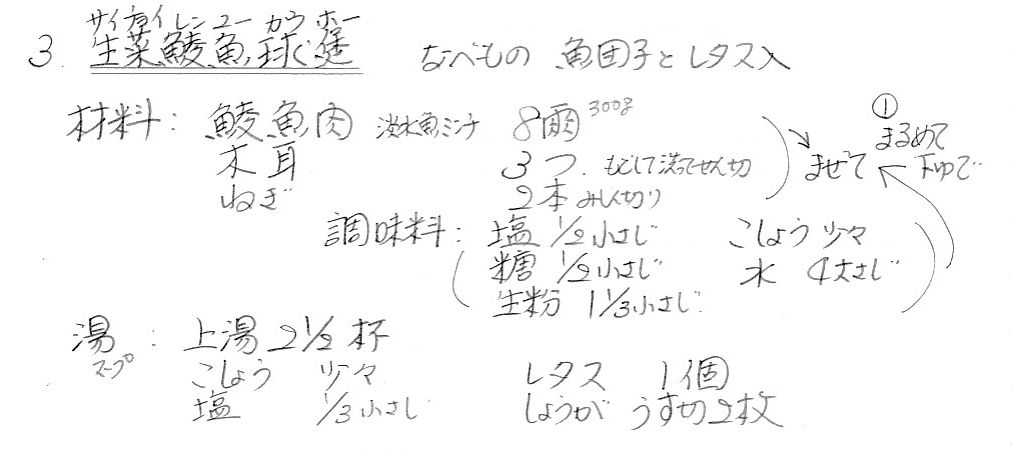 サイチョイ レンユー カウ ホー
3. 生菜鯪魚球煲 なべもの 魚団子とレタス入
材料: 鯪魚肉 淡水魚ミンチ 8両 300g
木耳 3つ. もどして洗ってせん切
ねぎ 2本 みじん切り
まぜて
① まるめて 下ゆで
調味料: 塩 1/2小さじ こしょう 少々
糖 1/2小さじ 水 4大さじ
生粉 1 1/3小さじ
湯: 上湯 2 1/2杯
スープ
こしょう 少々 レタス 1個
塩 1/3小さじ しょうが うす切2枚